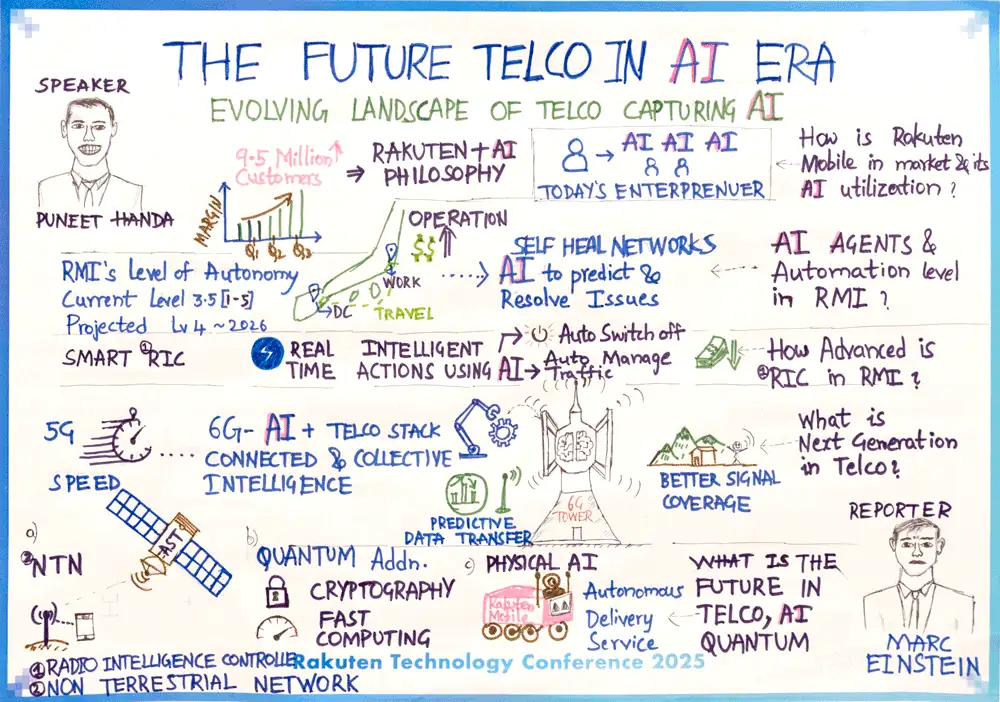 THE FUTURE TELCO IN AI ERA
EVOLVING LANDSCAPE OF TELCO CAPTURING AI
SPEAKER
PUNEET HANDA
9.5 Million
Customers
MARGIN
Q1 Q2 Q3
⇒ RAKUTEN + AI
PHILOSOPHY
→ AI AI AI
TODAY'S ENTERPRENUER
How is Rakuten
Mobile in market & its
AI utilization ?
RMI's Level of Autonomy
Current Level 3.5 [1-5]
Projected Lv 4 ~ 2026
OPERATION
$$
WORK
DC
TRAVEL
SELF HEAL NETWORKS
AI to predict &
Resolve Issues
AI AGENTS &
Automation level
in RMI ?
SMART ①RIC
REAL
TIME
INTELLIGENT
ACTIONS USING AI
Auto Switch off
Auto Manage
Traffic
How Advanced is
①RIC in RMI ?
5G
SPEED
6G- AI + TELCO STACK
CONNECTED & COLLECTIVE
INTELLIGENCE
PREDICTIVE
DATA TRANSFER
6G
TOWER
BETTER SIGNAL
COVERAGE
What is
Next Generation
in Telco?
a)
②NTN
AST
b)
QUANTUM Addn.
CRYPTOGRAPHY
FAST
COMPUTING
c) PHYSICAL AI
Rakuten
Mobile
Autonomous
Delivery
Service
WHAT IS THE
FUTURE IN
TELCO, AI
QUANTUM
REPORTER
MARC
EINSTEIN
① RADIO INTELLIGENCE CONTROLLER
② NON TERRESTRIAL NETWORK
Rakuten Technology Conference 2025